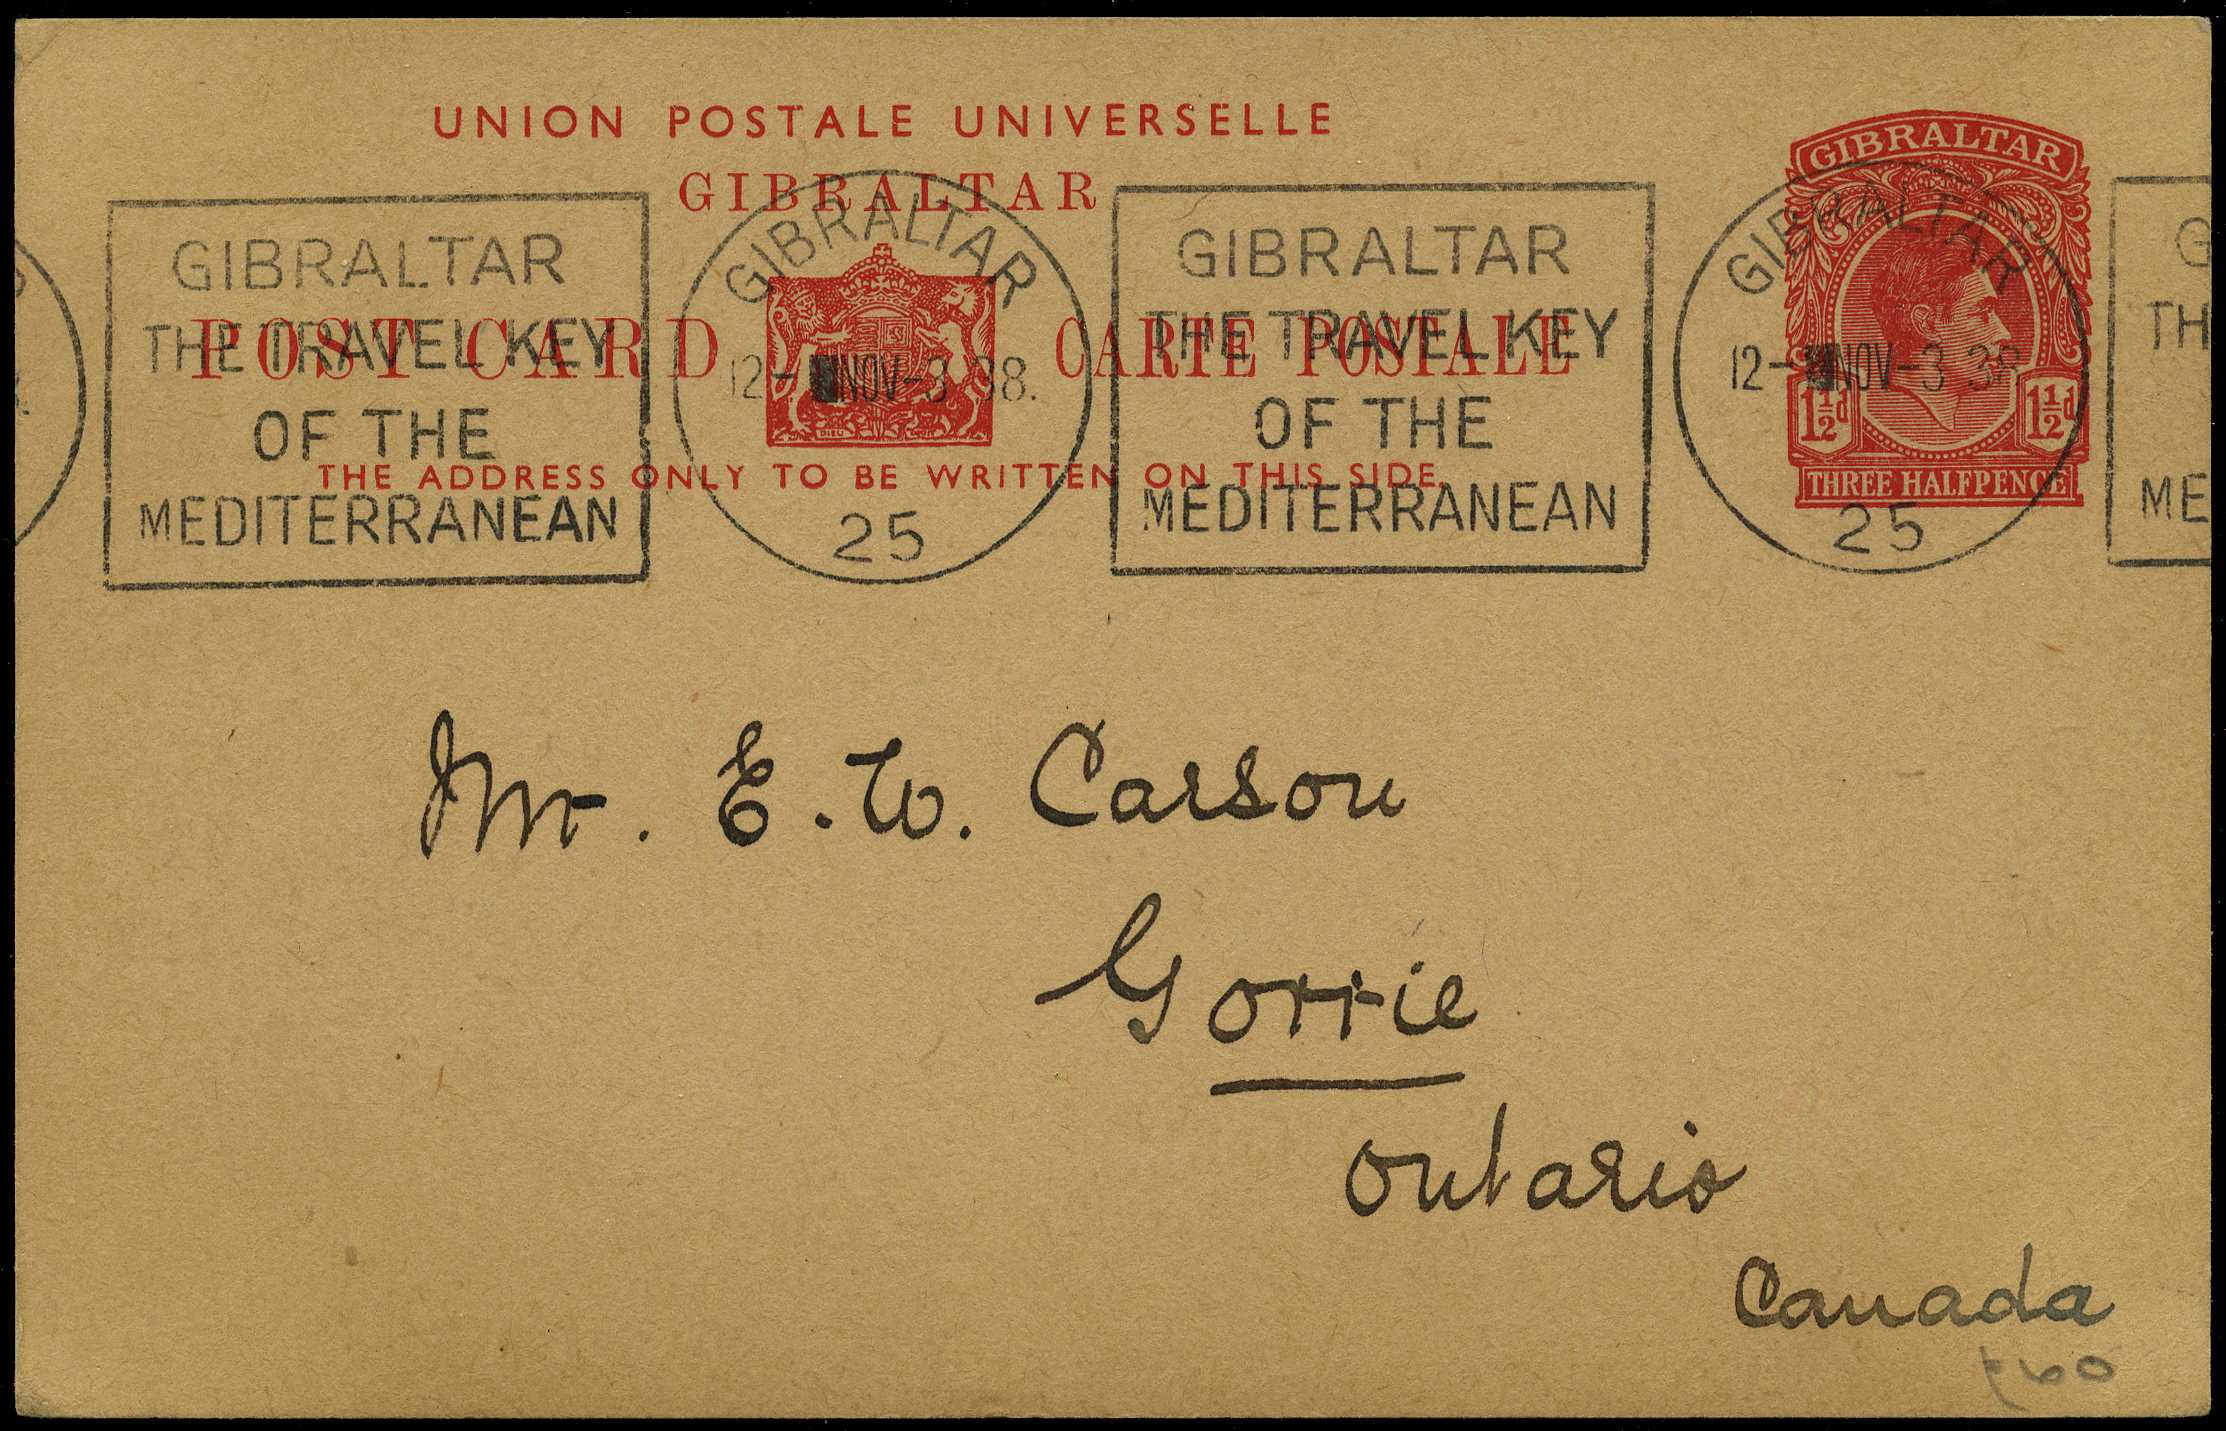 UNION POSTALE UNIVERSELLE
GIBRALTAR
POST CARD CARTE POSTALE
THE ADDRESS ONLY TO BE WRITTEN ON THIS SIDE.
GIBRALTAR
1½d 1½d
THREE HALFPENCE
GIBRALTAR
THE TRAVEL KEY
OF THE
MEDITERRANEAN
GIBRALTAR
12- NOV-3 38.
25
GIBRALTAR
THE TRAVEL KEY
OF THE
MEDITERRANEAN
GIBRALTAR
12- NOV-3 38
25
G
TH
ME
Mr. E. W. Carson
Gorrie
Ontario
Canada
£60